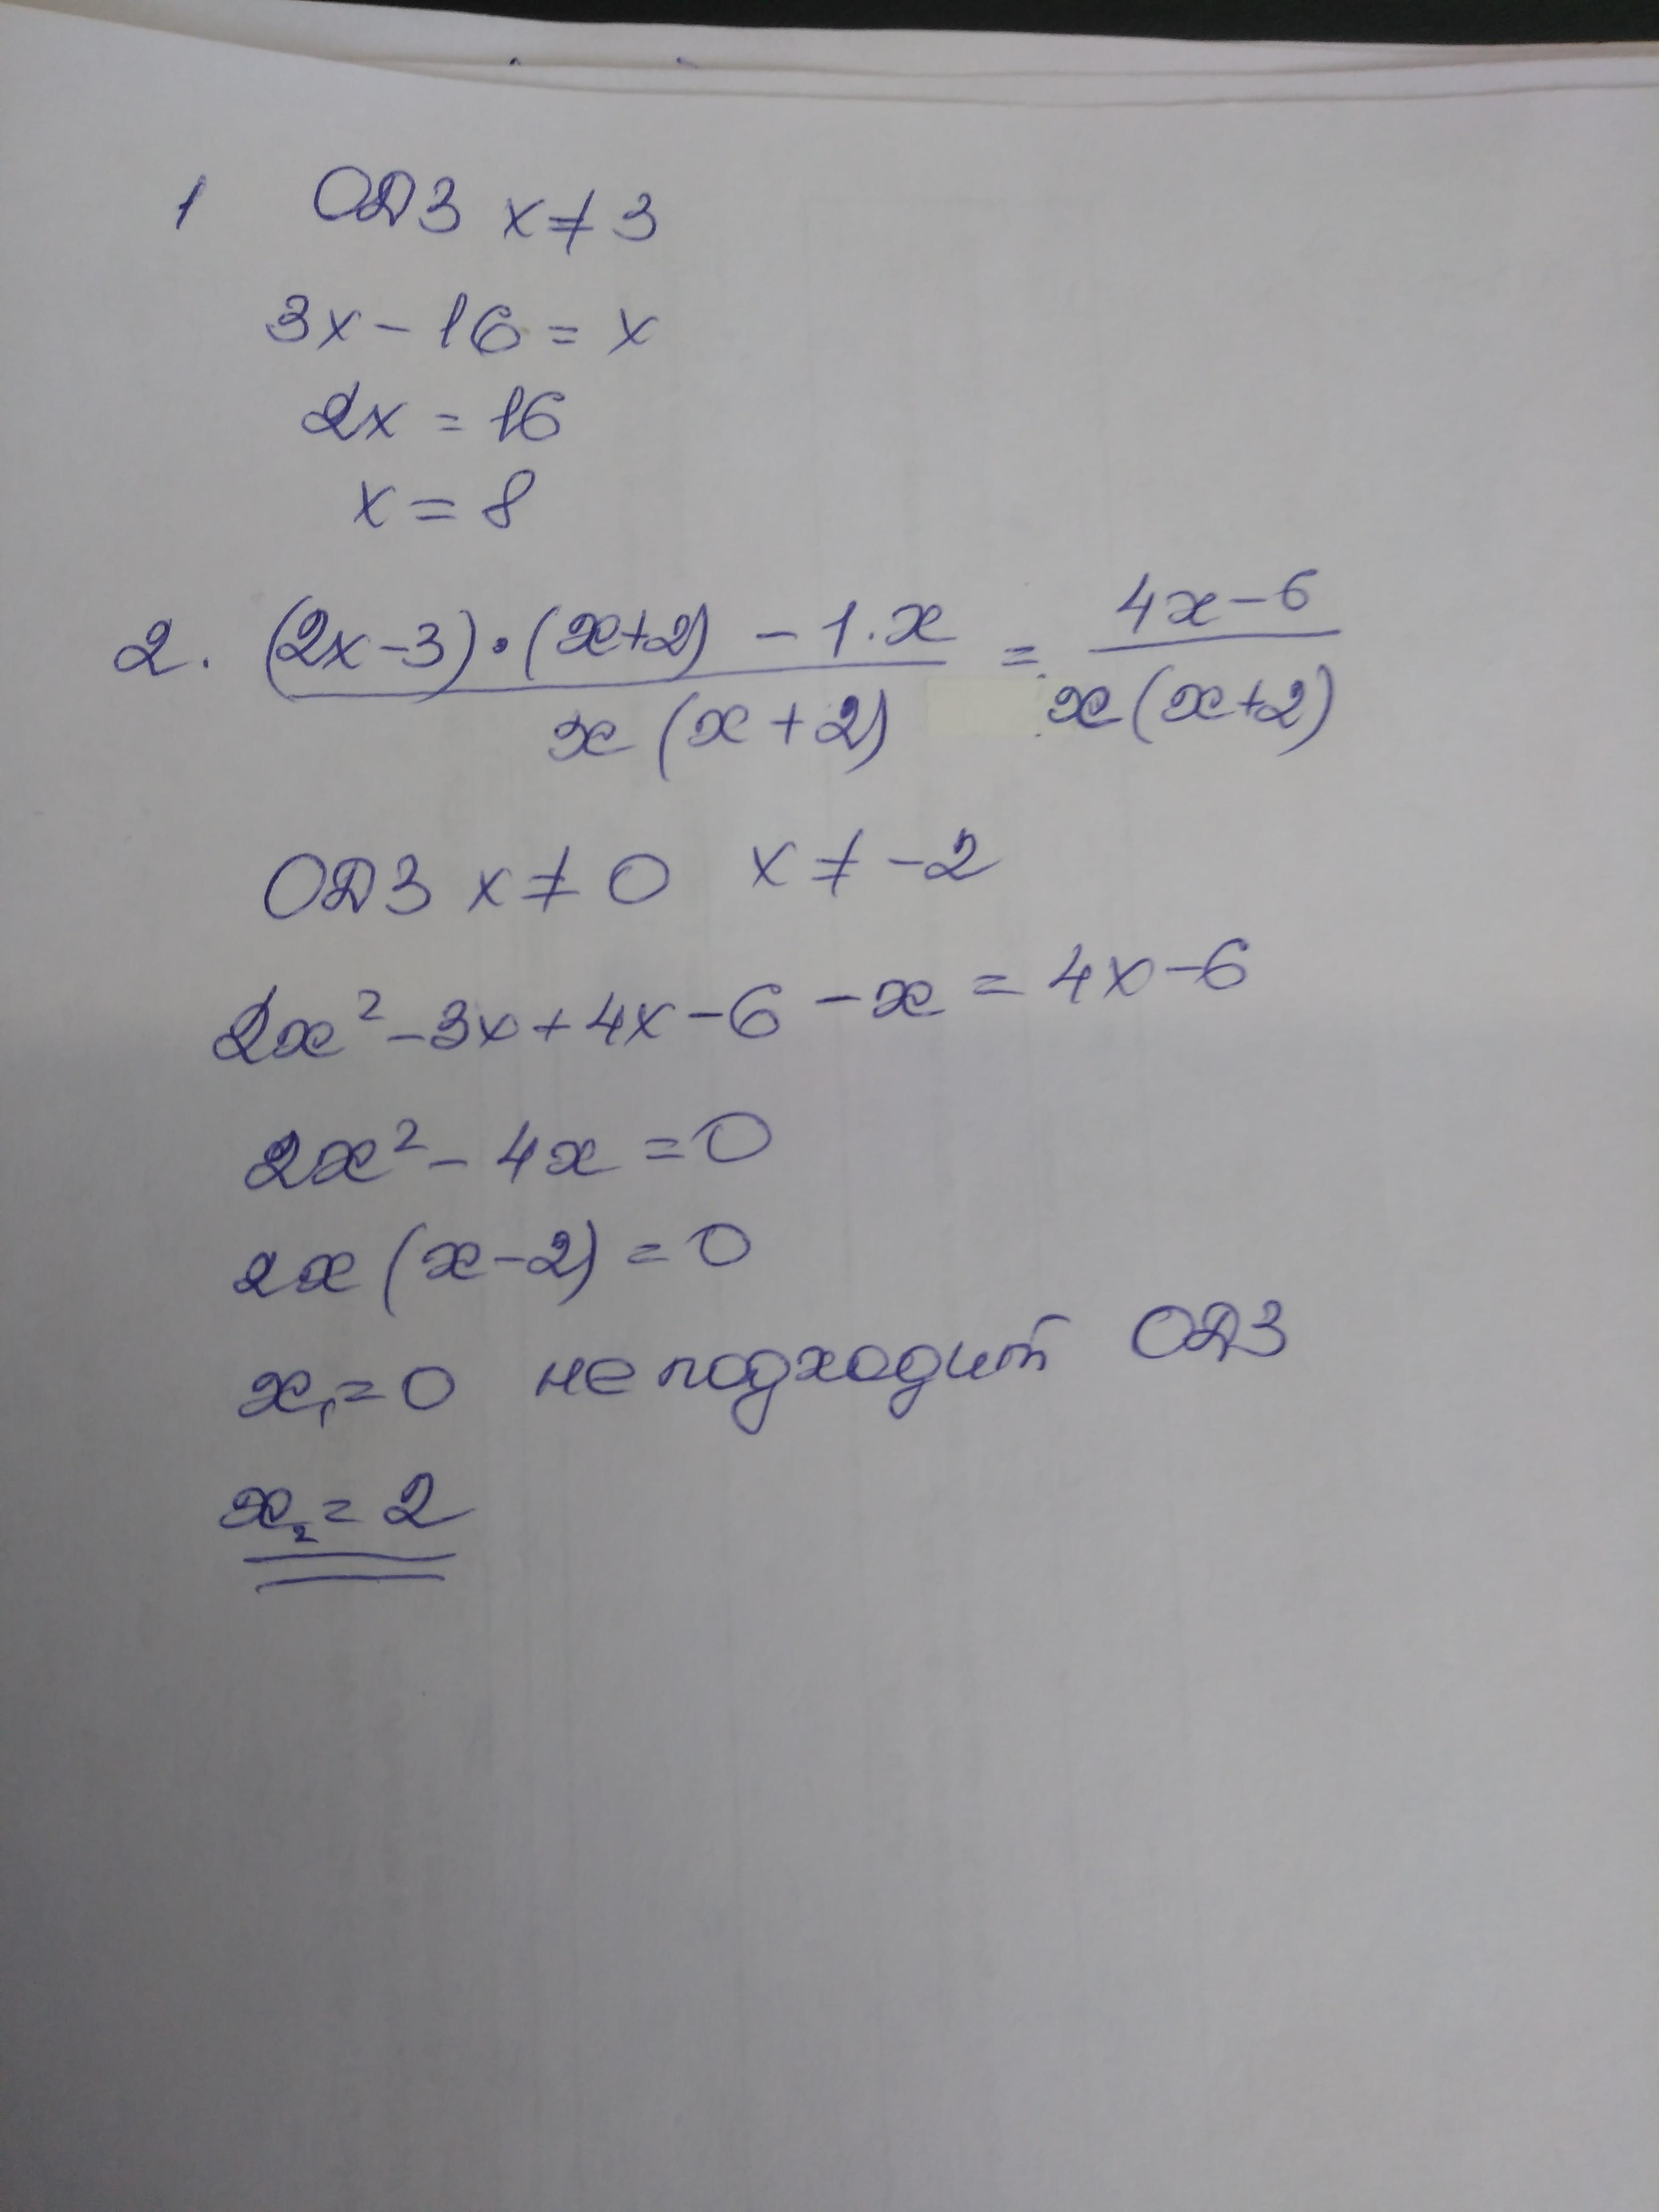 1 ОДЗ x ≠ 3
3x - 16 = x
2x = 16
x = 8
2. (2x-3)·(x+2) - 1·x / x(x+2) = 4x-6 / x(x+2)
ОДЗ x ≠ 0 x ≠ -2
2x² - 3x + 4x - 6 - x = 4x - 6
2x² - 4x = 0
2x(x-2) = 0
x₁ = 0 не подходит ОДЗ
x₂ = 2